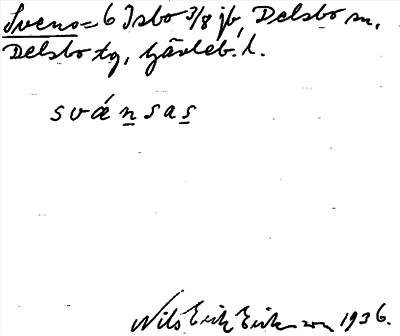 Svens= 6 Isbo 3/8 jb, Delsbo sn,
Delsbo tg, Gävleb. l.
svánsas
Nils Erik Eriksson 1936.